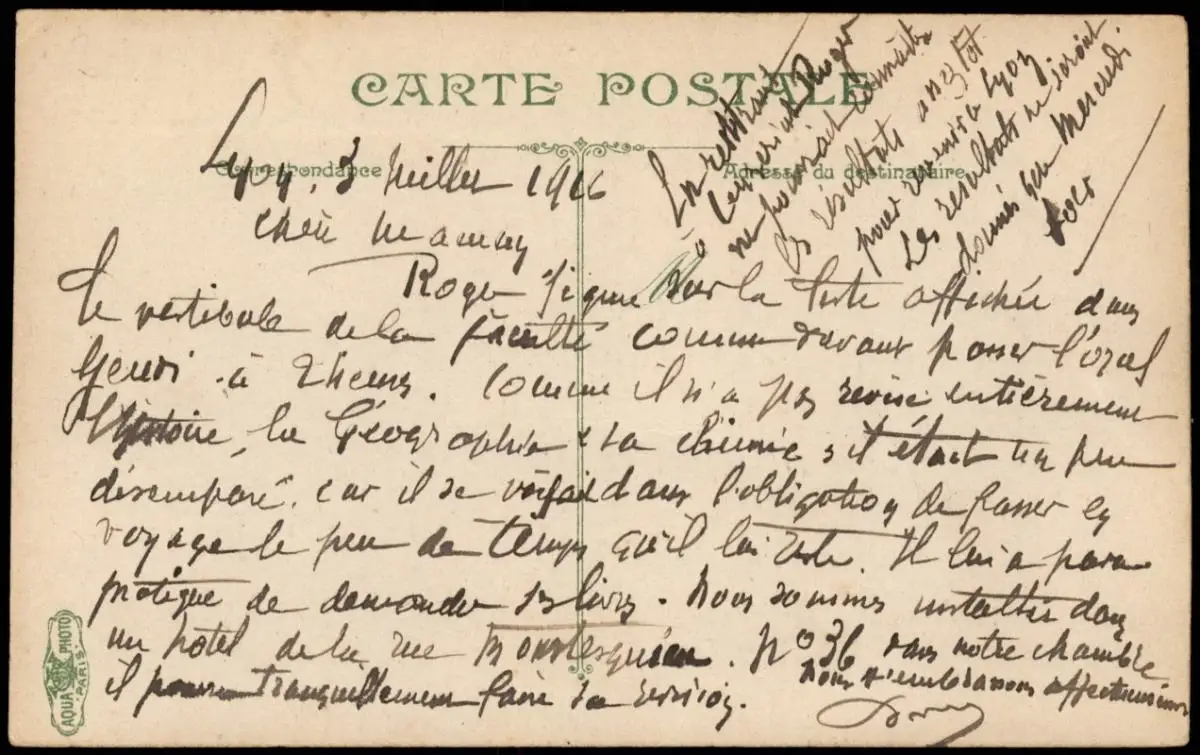 CARTE POSTALE
Correspondance
Adresse du destinataire
Lyon, 3 Juillet 1916
Chère Mamy
Roger figure sur la liste affichée dans
le vestibule de la faculté comme devant passer l'oral
Jeudi à 2 heures. Comme il n'a pas revisé entièrement
l'histoire, la Géographie & sa chimie, il était un peu
désemparé, car il se voyait dans l'obligation de passer en
voyage le peu de temps qu'il lui reste. Il lui a paru
pratique de demander ses livres. Nous sommes installés dans
un hotel de la rue Montesquieu. No 36 dans notre chambre
il pourra tranquillement faire sa revision.
Nous t'embrassons affectueusement
En rentrant
à Roger
ne pourrait connaitre
les résultats assez tot
pour revenir à Lyon
Les resultats ne seront
donnés que Mercredi
soir
AQUA PHOTO
PARIS